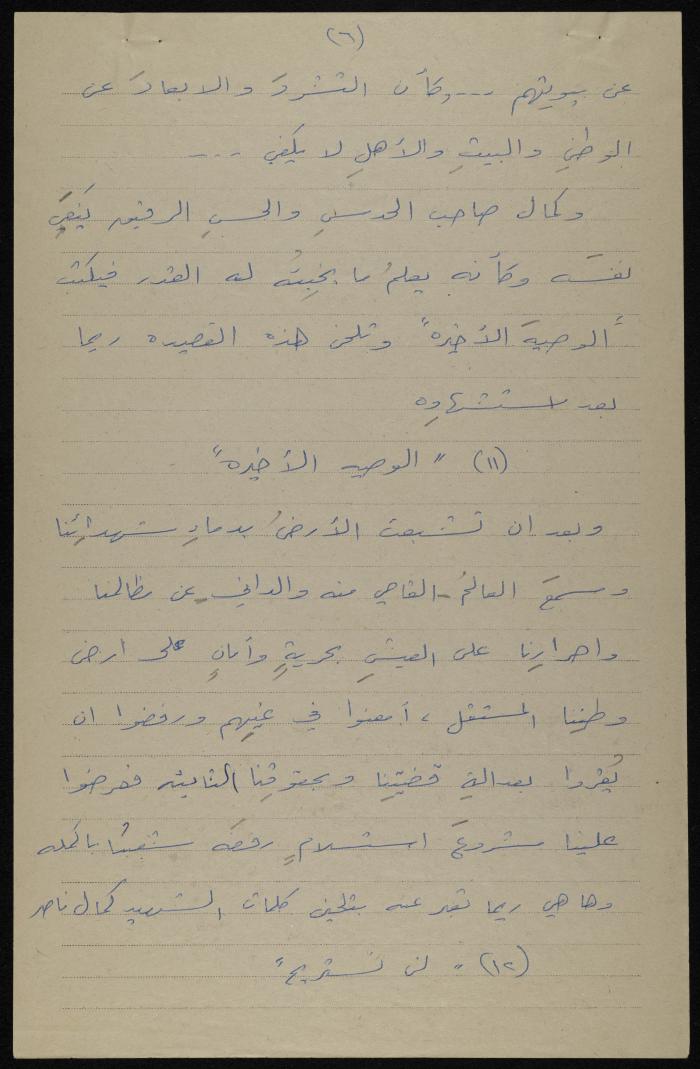 (٦)
عن بيوتهم ... وكأن التشردَ والابعادَ عن
الوطنِ والبيتِ والأهلِ لا يكفي ...
وكمال صاحب الحدسِ والحسِ الرقيق ينعي
نفسَه وكأنه يعلمُ ما يخبِئهُ له القدر فيكتب
"الوصيةَ الأخيره" وتلحن هذه القصيده ريما
بعد استشهادِه
(١١) "الوصيه الأخيره"
وبعد ان تشبعت الأرضُ بدماءِ شهدائِنا
وسمعَ العالمُ القاصي منه والداني عن مظالمنا
واصرارِنا على العيشِ بحريةٍ وأمانٍ على ارض
وطنِنا المستقل ، أمعنوا في غيِهم ورفضوا ان
يُقِروا بعدالةِ قضيتِنا وبحقوقِنا الثابته ففرضوا
علينا مشروعَ استسلامٍ رفضَه شعبُنا باكمله
وها هي ريما تعبر عنه بتلحين كلمات الشهيد كمال ناصر
(١٢) "لن نستريح"